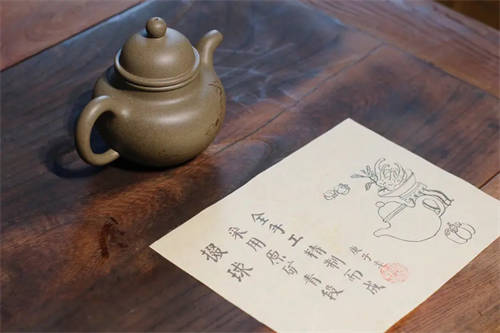 掇球
采用原矿青段
全手工精制而成
庚子